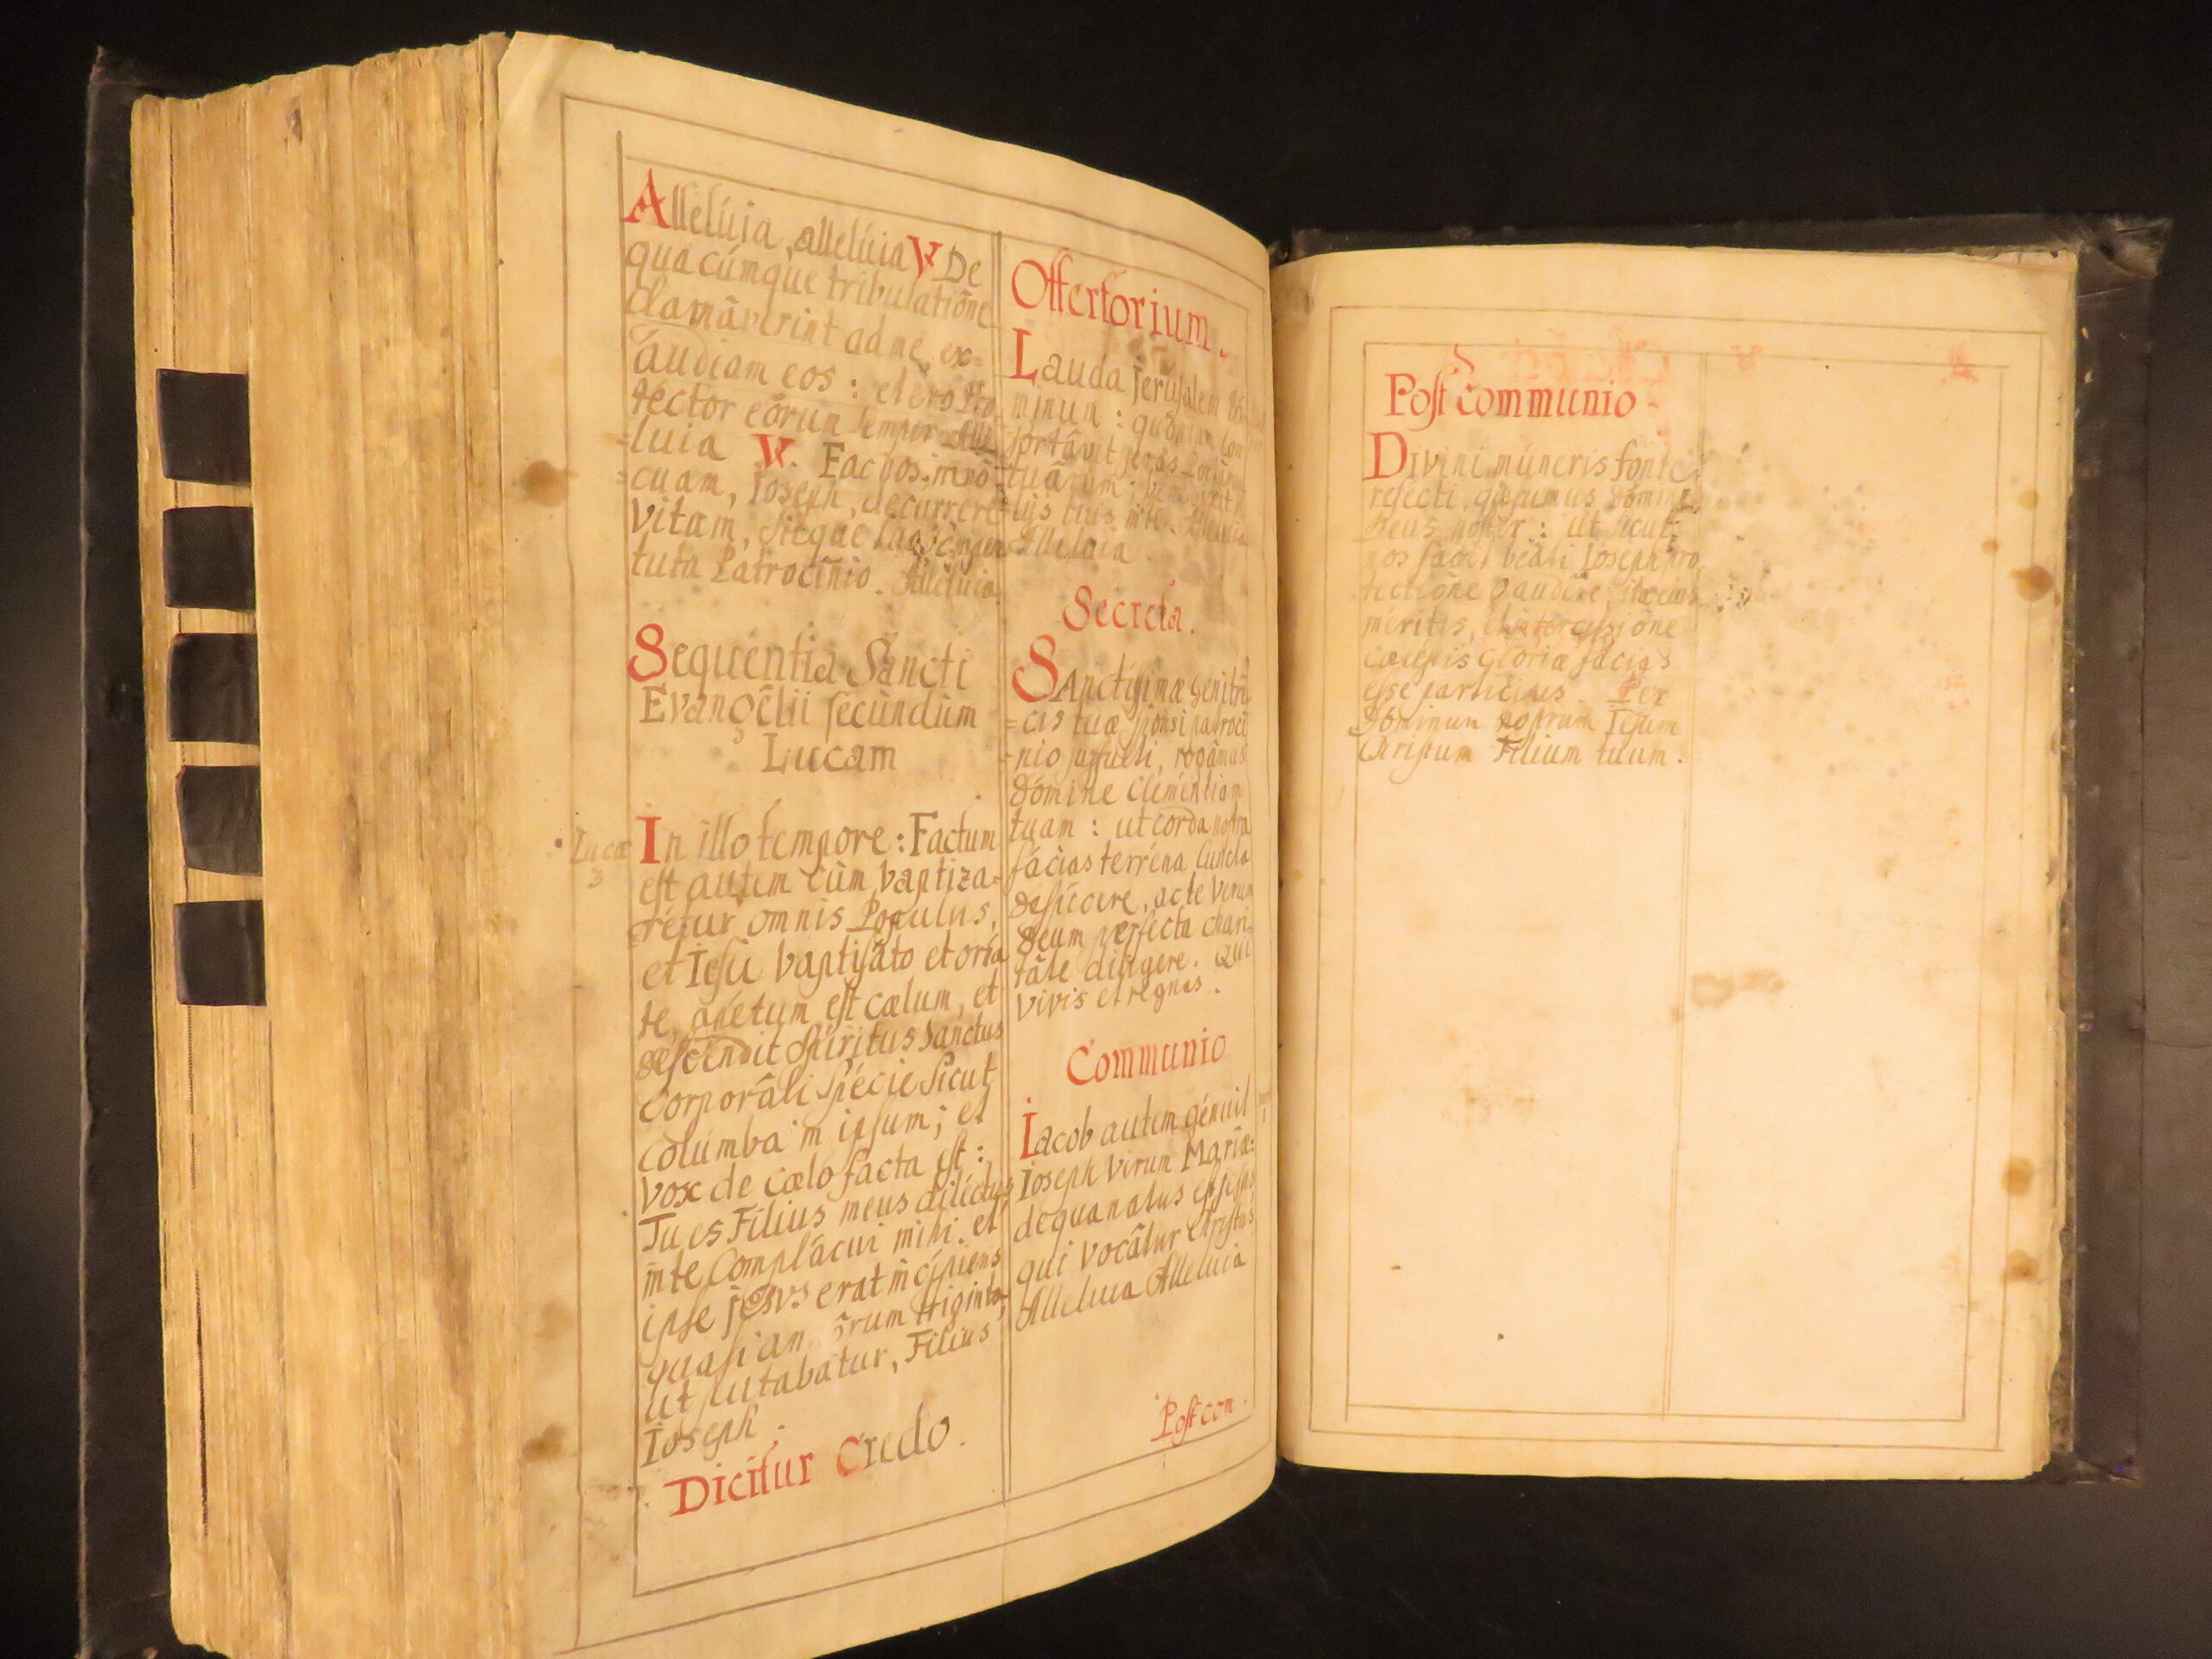 Allelúia, allelúia V. De
quacúmque tribulatiône
clamâverint ad me, ex=
audiam eos : et ero Pro
téctor eôrum semper Alle
=luia V. Fac nos innó
=cuam, Ioseph, decurrere
vitam, sitque tuo semper
tuta Patrocínio. Alleluia
Sequentia Sancti
Evangêlii secùndum
Lucam
Lucæ
3
In illo tempore : Factum
est autem cùm baptiza=
=rétur omnis Populus,
et Iesu baptisâto et orán
te, apértum est cælum, et
descéndit Spíritus Sanctus
corporâli Spécie Sicut
Colúmba in ipsum; et
vox de Cœlo facta est :
Tu es Filius meus diléctus
in te Complácui mihi. et
ipse Jesus erat incípiens
quasi an ôrum triginta,
ut putabatur, Filius
Ioseph.
Dicitur Credo.
Offertorium.
Lauda Jerusalem Dó
minum : quóniam Con
fortâvit seras Portâ
tuârum;
=lijs tuis in te. Alleluia
Alleluia.
Secreta.
Sanctíssimæ genitrí
=cis tuæ sponsi patroci
=nio suffulti, rogâmus
Dómine Cleméntiam
tuam : ut corda nostra
fácias terréna Cuncta
despícere, ac te Verum
Deum perfecta chari
tâte diligere. Qui
vivis et regnas.
Communio
Iacob autem génuit
Ioseph Virum Mariæ:
de qua natus est Jesus
qui vocâtur Christus
Alleluia Alleluia
Post com.
Post communio
Divini múneris fonte
refecti, quæsumus, Dómine
Deus noster : ut sicut
nos facis beáti Ioseph pro
tectiône gaudêre, ita eius
méritis, et intercessiône
cælestis Gloriæ facias
esse partícipes. Per
Dóminum nostrum Iesum
Christum Filium tuum.